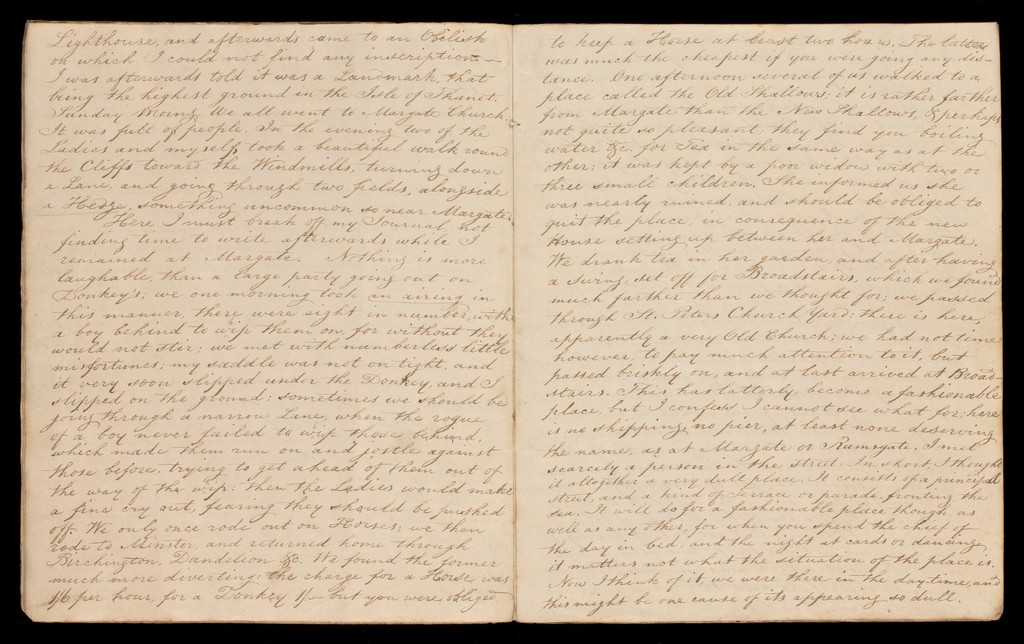 Lighthouse, and afterwards came to an Obelisk
on which I could not find any inscription.—
I was afterwards told it was a Landmark, that
being the highest ground in the Isle of Thanet.
Sunday Morng We all went to Margate Church.
It was full of people. In the evening two of the
Ladies and myself took a beautiful walk round
the Cliffs toward the Windmills, turning down
a Lane, and going through two fields, alongside
a Hedge, something uncommon so near Margate.
Here I must break off my Journal, not
finding time to write afterwards while I
remained at Margate. Nothing is more
laughable, than a large party going out on
Donkey's; we one morning took an airing in
this manner, there were eight in number, with
a boy behind to wip them on, for without they
would not stir; we met with numberless little
misfortunes; my saddle was not on tight, and
it very soon slipped under the Donkey, and I
slipped on the ground; sometimes we should be
going through a narrow Lane, when the rogue
of a boy never failed to wip those behind,
which made them run on and jostle against
those before, trying to get ahead of them out of
the way of the wip: then the Ladies would make
a fine cry out, fearing they should be pushed
off. We only once rode out on Horses; we then
rode to Minster, and returned home through
Birchington, Dandelion &c. We found the former
much more diverting: the charge for a Horse, was
1/6 per hour, for a Donkey 1/— but you were obliged
to keep a Horse at least two hours. The latter
was much the cheapest if you were going any dis-
tance. One afternoon several of us walked to a
place called the Old Shallows; it is rather farther
from Margate than the New Shallows, & perhaps
not quite so pleasant; they find you boiling
water &c. for Tea in the same way as at the
other; it was kept by a poor widow with two or
three small children. She informed us she
was nearly ruined, and should be obliged to
quit the place, in consequence of the new
House setting up between her and Margate.
We drank tea in her garden, and after having
a swing, set off for Broadstairs, which we found
much farther than we thought for; we passed
through St. Peters Church Yard; there is here,
apparently a very Old Church; we had not time
however, to pay much attention to it, but
passed briskly on, and at last arrived at Broad-
stairs. This has latterly, become a fashionable
place, but I confess I cannot see what for; here
is no shipping, no pier, at least none deserving
the name, as at Margate or Ramsgate. I met
scarcely a person in the street. In short, I thought
it altogether a very dull place. It consists of a principal
street, and a kind of terrace or parade fronting the
Sea. It will do for a fashionable place though, as
well as any other, for when you spend the chief of
the day in bed, and the night at cards or dancing,
it matters not what the situation of the place is.
Now I think of it, we were there in the daytime, and
this might be one cause of its appearing so dull.